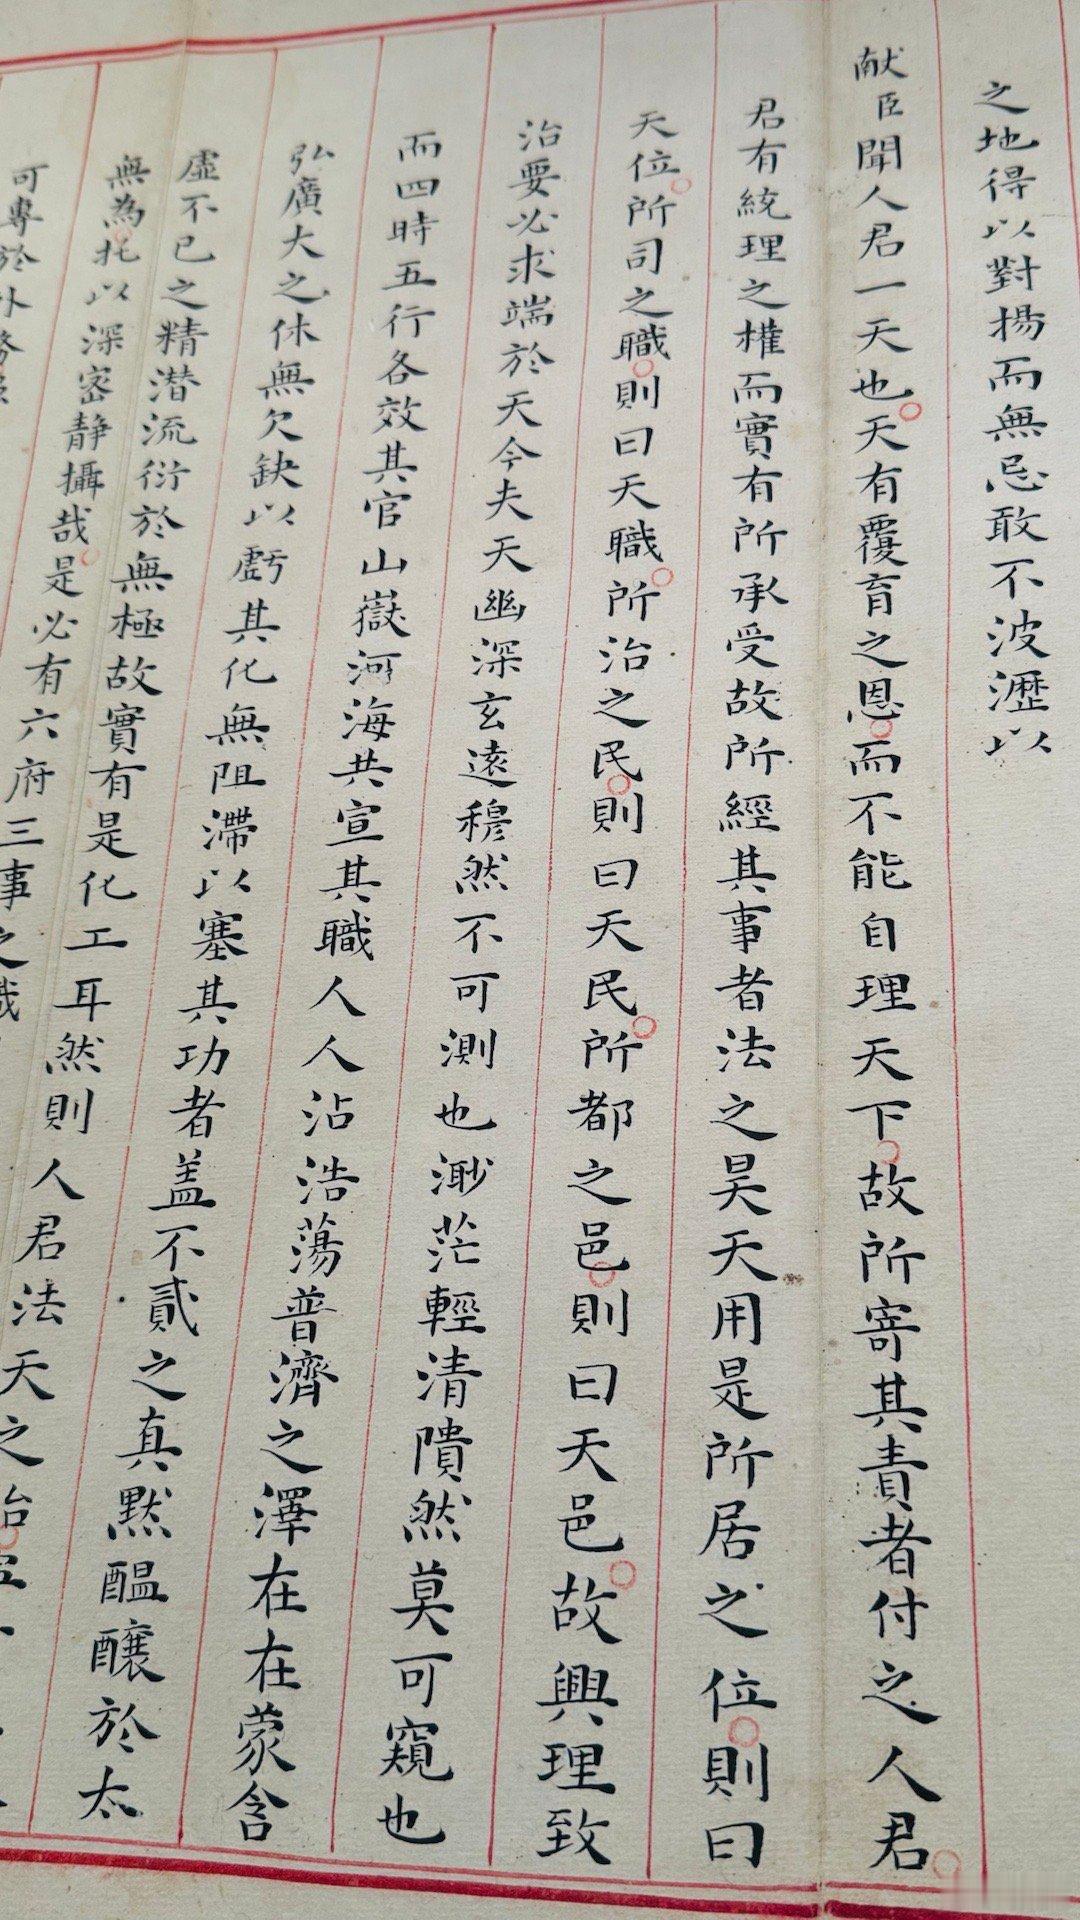 之地得以對揚而無忌敢不波瀝以
献臣聞人君一天也天有覆育之恩而不能自理天下故所寄其責者付之人君
君有統理之權而實有所承受故所經其事者法之昊天用是所居之位則曰
天位所司之職則曰天職所治之民則曰天民所都之邑則曰天邑故興理致
治要必求端於天今夫天幽深玄遠穆然不可測也渺茫輕清隤然莫可窺也
而四時五行各效其官山嶽河海共宣其職人人沾浩蕩普濟之澤在在蒙含
弘廣大之休無欠缺以虧其化無阻滯以塞其功者盖不貳之真默醞釀於太
虛不已之精潛流衍於無極故實有是化工耳然則人君法天之治
無為托以深密静攝哉是必有六府三事之
可專於外務